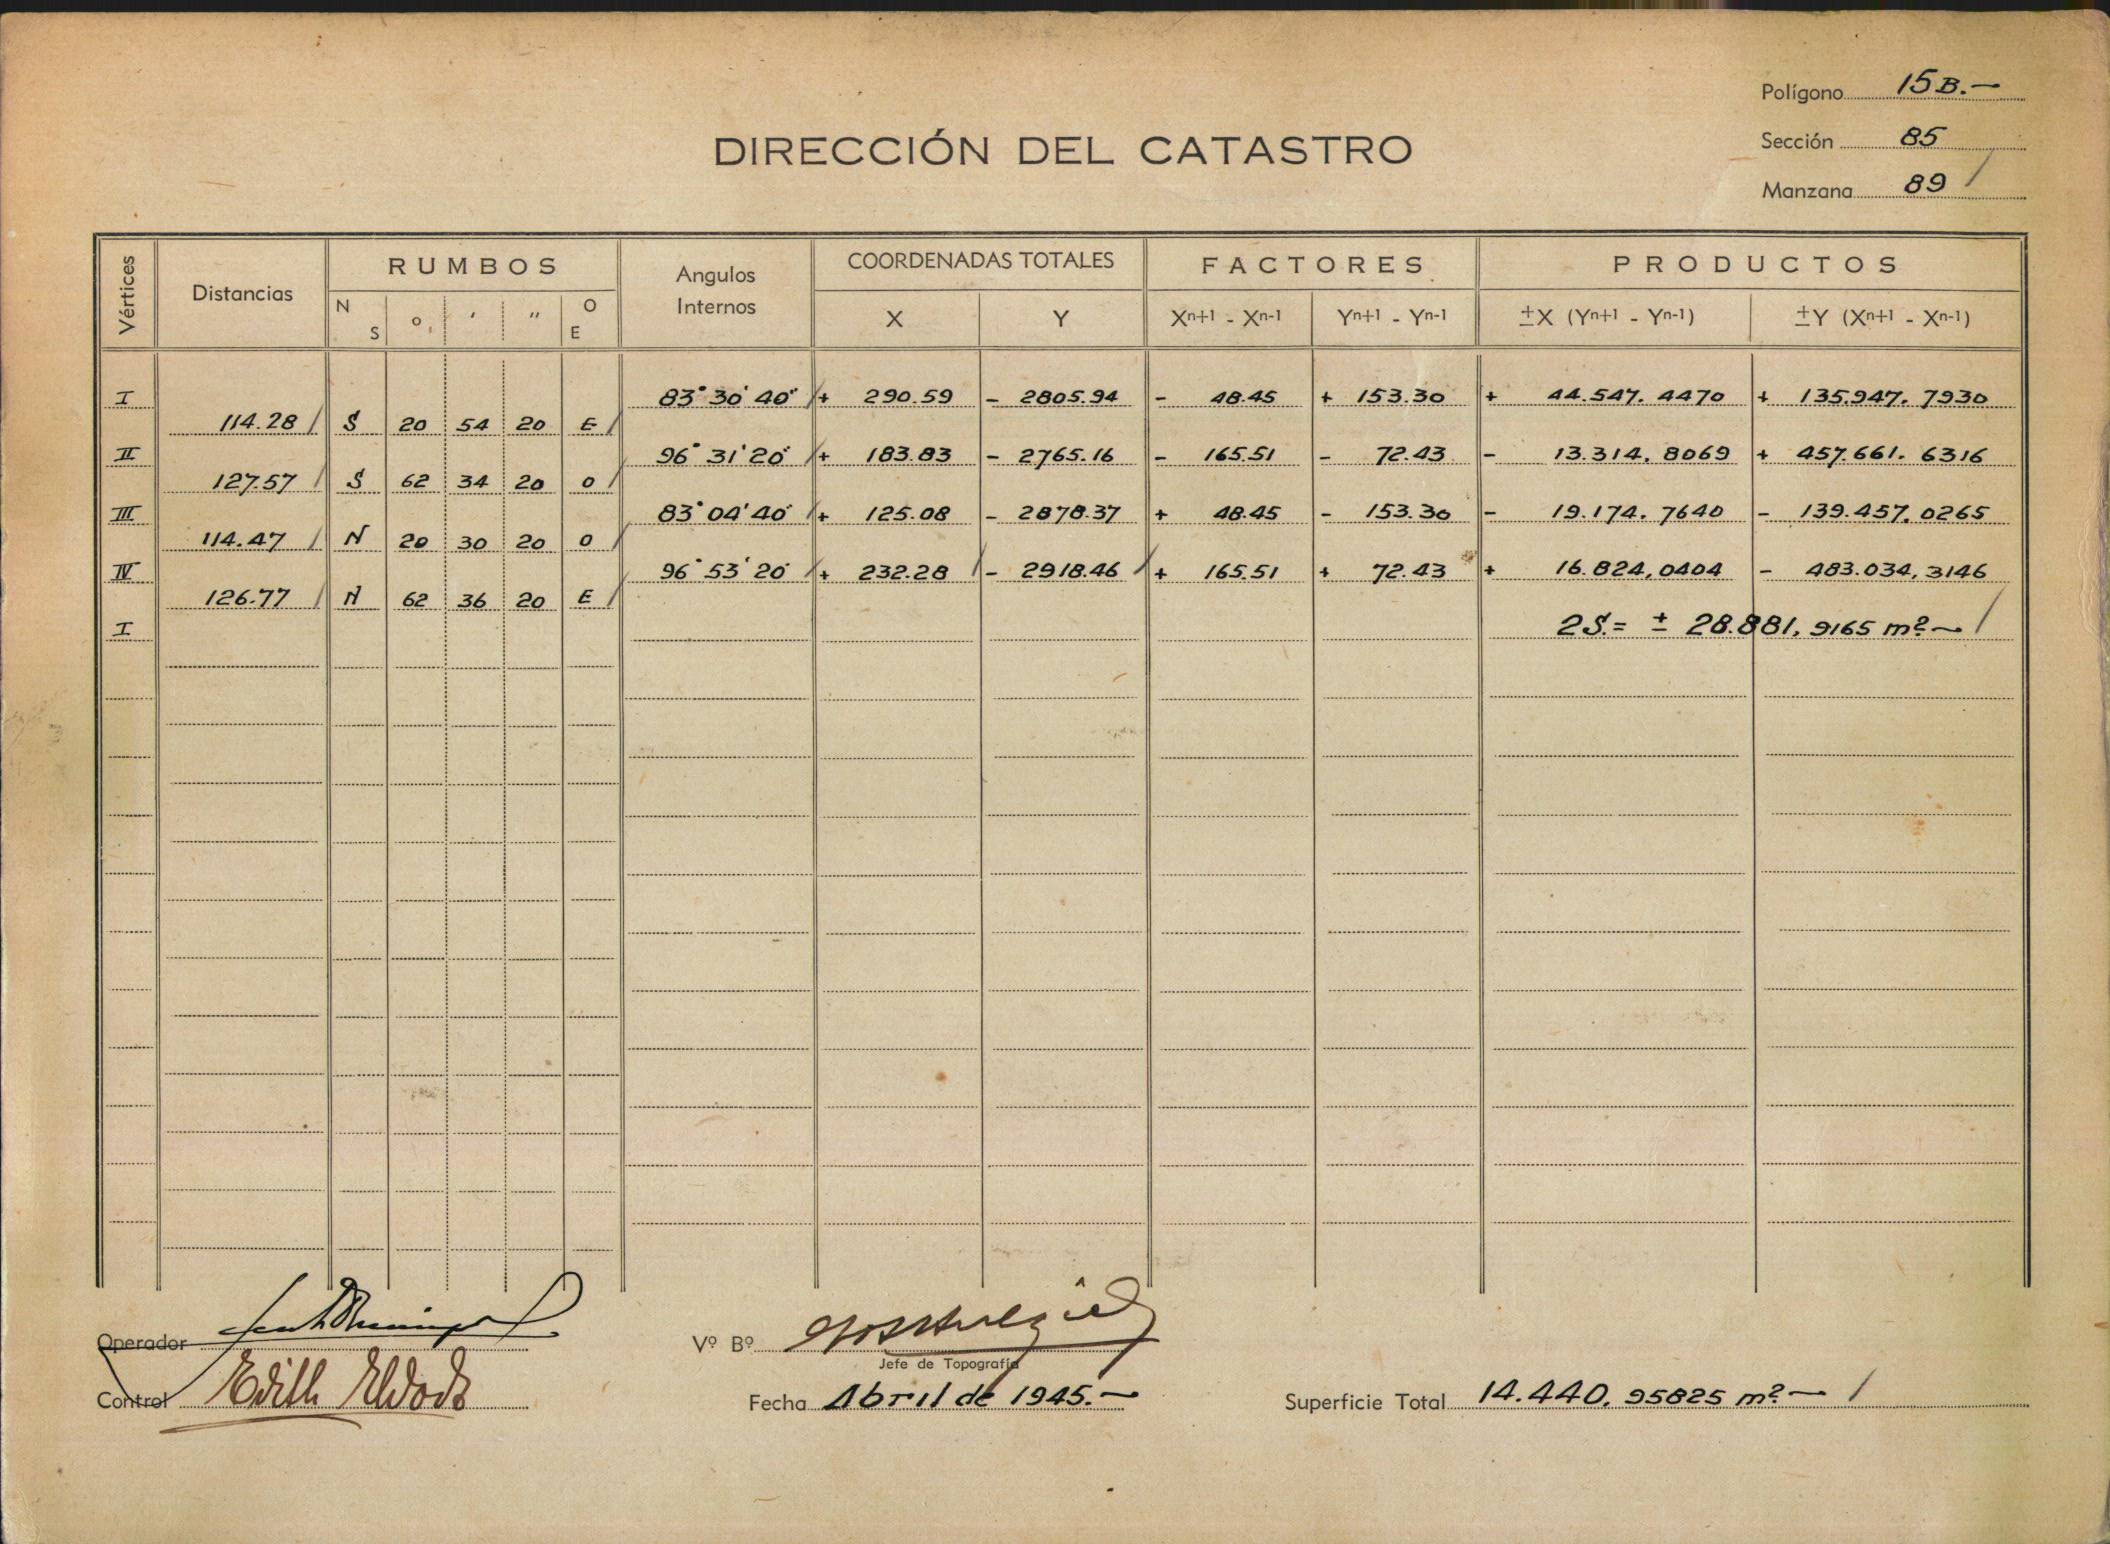 Polígono 15B.—
DIRECCIÓN DEL CATASTRO
Sección 85
Manzana 89
Vértices Distancias RUMBOS N S o ′ ″ O E Angulos Internos COORDENADAS TOTALES X Y FACTORES Xn+1 - Xn-1 Yn+1 - Yn-1 PRODUCTOS ±X (Yn+1 - Yn-1) ±Y (Xn+1 - Xn-1)
I 83° 30' 40" + 290.59 - 2805.94 - 48.45 + 153.30 + 44.547.4470 + 135.947.7930
114.28 S 20 54 20 E
II 96° 31' 20" + 183.83 - 2765.16 - 165.51 - 72.43 - 13.314.8069 + 457.661.6316
127.57 S 62 34 20 O
III 83° 04' 40" + 125.08 - 2878.37 + 48.45 - 153.30 - 19.174.7640 - 139.457.0265
114.47 N 20 30 20 O
IV 96° 53' 20" + 232.28 - 2918.46 + 165.51 + 72.43 + 16.824,0404 - 483.034,3146
126.77 N 62 36 20 E
I 2S.= ± 28.881,9165 m²—
Operador
Vº Bº
Jefe de Topografía
Control Edith
Fecha Abril de 1945.—
Superficie Total 14.440.95825 m²—